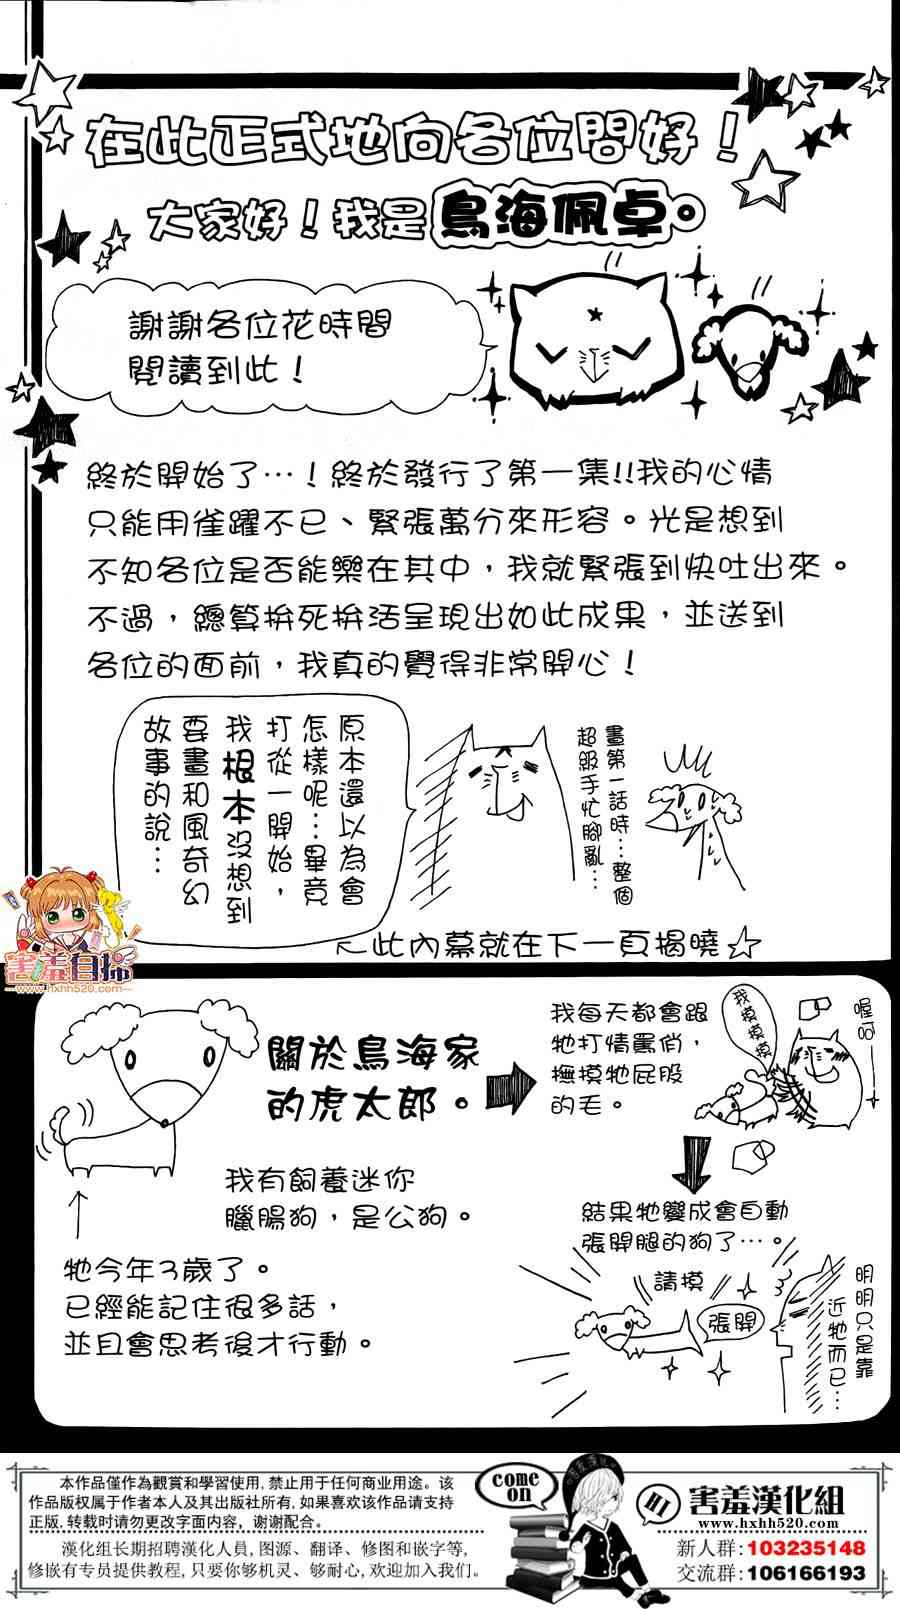 在此正式地向各位問好！
大家好！我是鳥海佩卓。
謝謝各位花時間
閱讀到此！
終於開始了…！終於發行了第一集!!我的心情
只能用雀躍不已、緊張萬分來形容。光是想到
不知各位是否能樂在其中，我就緊張到快吐出來。
不過，總算拚死拚活呈現出如此成果，並送到
各位的面前，我真的覺得非常開心！
原本還以為會
怎樣呢…畢竟
打從一開始，
我根本沒想到
要畫和風奇幻
故事的說…
畫第一話時…整個
超級手忙腳亂…
此內幕就在下一頁揭曉☆
害羞自掃
www.hxhh520.com
關於鳥海家
的虎太郎。
我有飼養迷你
臘腸狗，是公狗。
牠今年3歲了。
已經能記住很多話，
並且會思考後才行動。
我每天都會跟
牠打情罵俏，
撫摸牠屁股
的毛。
我摸摸摸
喔呵——
結果牠變成會自動
張開腿的狗了…。
請摸
張開
明明只是靠
近牠而已…
本作品僅作為觀賞和學習使用,禁止用于任何商业用途。该
作品版权属于作者本人及其出版社所有,如果喜欢该作品请支持
正版,转载时请勿更改字面内容，谢谢配合。
漢化組长期招聘漢化人員,图源、翻译、修图和嵌字等,
修嵌有专员提供教程,只要你够机灵、够耐心,欢迎加入我们。
come
on
HI
害羞漢化組
www.hxhh520.com
新人群:103235148
交流群:106166193